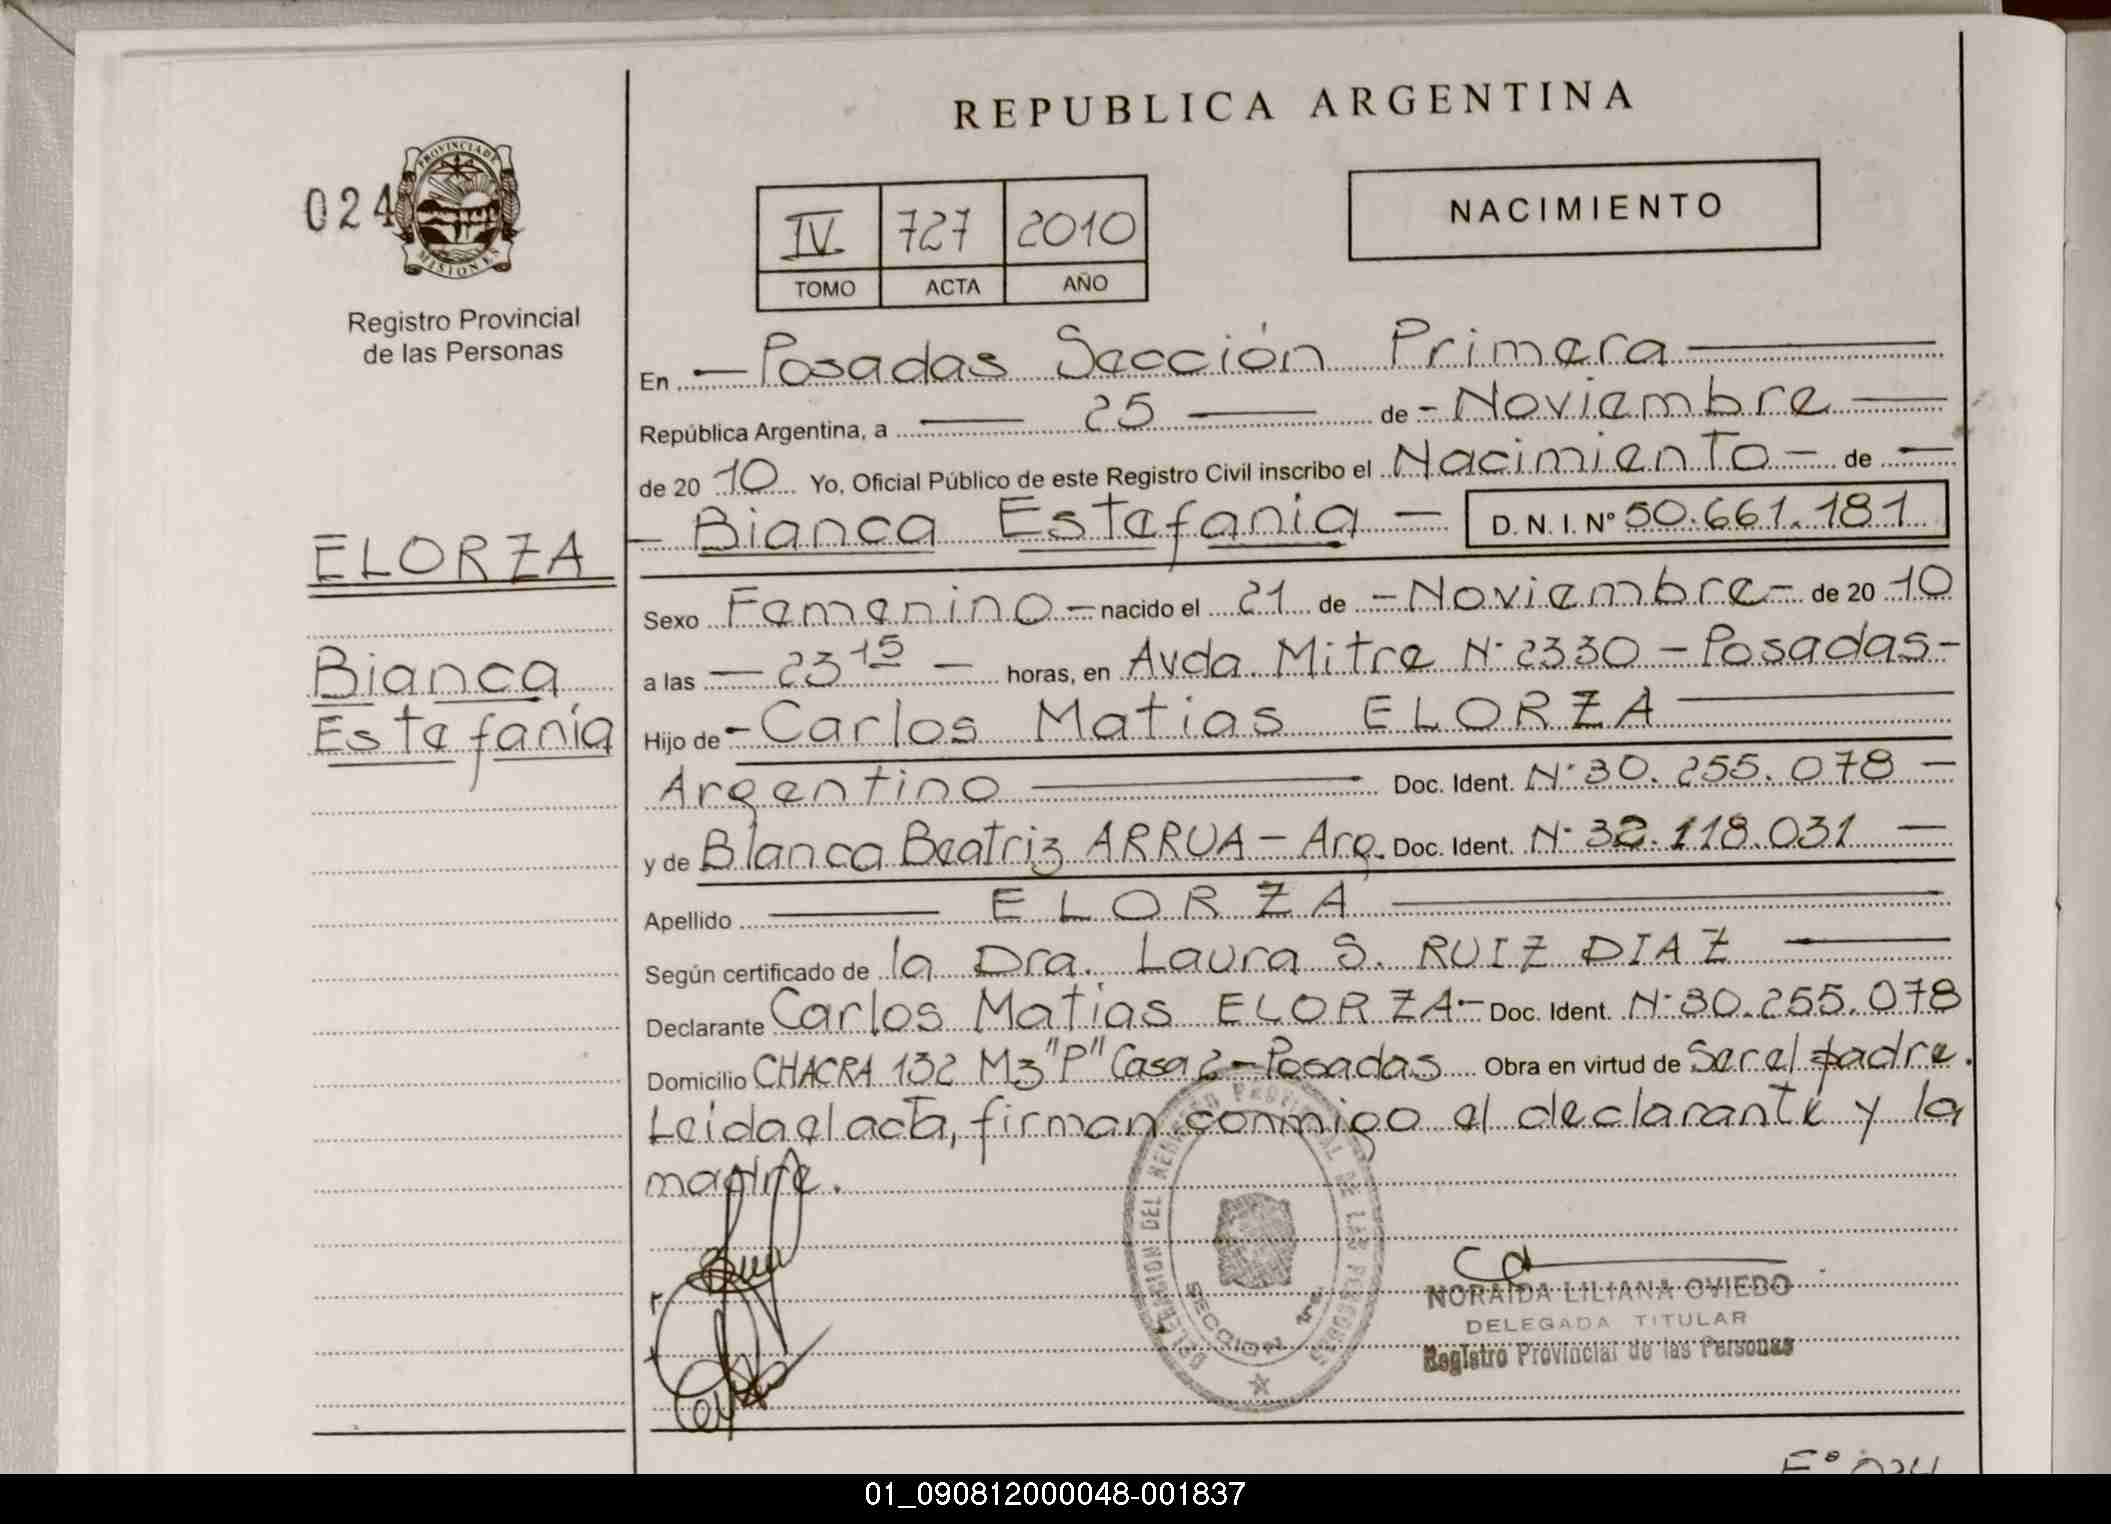 REPUBLICA ARGENTINA
024
PROVINCIA DE
MISIONES
Registro Provincial
de las Personas
IV 727 2010
TOMO ACTA AÑO
NACIMIENTO
En — Posadas Sección Primera —
República Argentina, a — 25 — de — Noviembre —
de 20 10 Yo, Oficial Público de este Registro Civil inscribo el Nacimiento — de —
— Bianca Estefanía — D. N. I. Nº 50.661.181
ELORZA
Bianca
Estefanía
Sexo Femenino — nacido el 21 de — Noviembre — de 20 10
a las — 23 15 — horas, en Avda. Mitre Nº 2330 — Posadas —
Hijo de — Carlos Matias ELORZA —
Argentino — Doc. Ident. Nº 30.255.078 —
y de Blanca Beatriz ARRUA — Arg. Doc. Ident. Nº 32.118.031 —
Apellido — ELORZA —
Según certificado de la Dra. Laura S. RUIZ DIAZ —
Declarante Carlos Matias ELORZA — Doc. Ident. Nº 30.255.078
Domicilio CHACRA 132 Mz "P" Casa 2 — Posadas Obra en virtud de Ser el padre.
Leida el acta, firman conmigo el declarante y la
madre.
DELEGACION DEL REGISTRO PROVINCIAL DE LAS PERSONAS
SECCION 1ª
NORAIDA LILIANA OVIEDO
DELEGADA TITULAR
Registro Provincial de las Personas
Fº 024
01_090812000048-001837